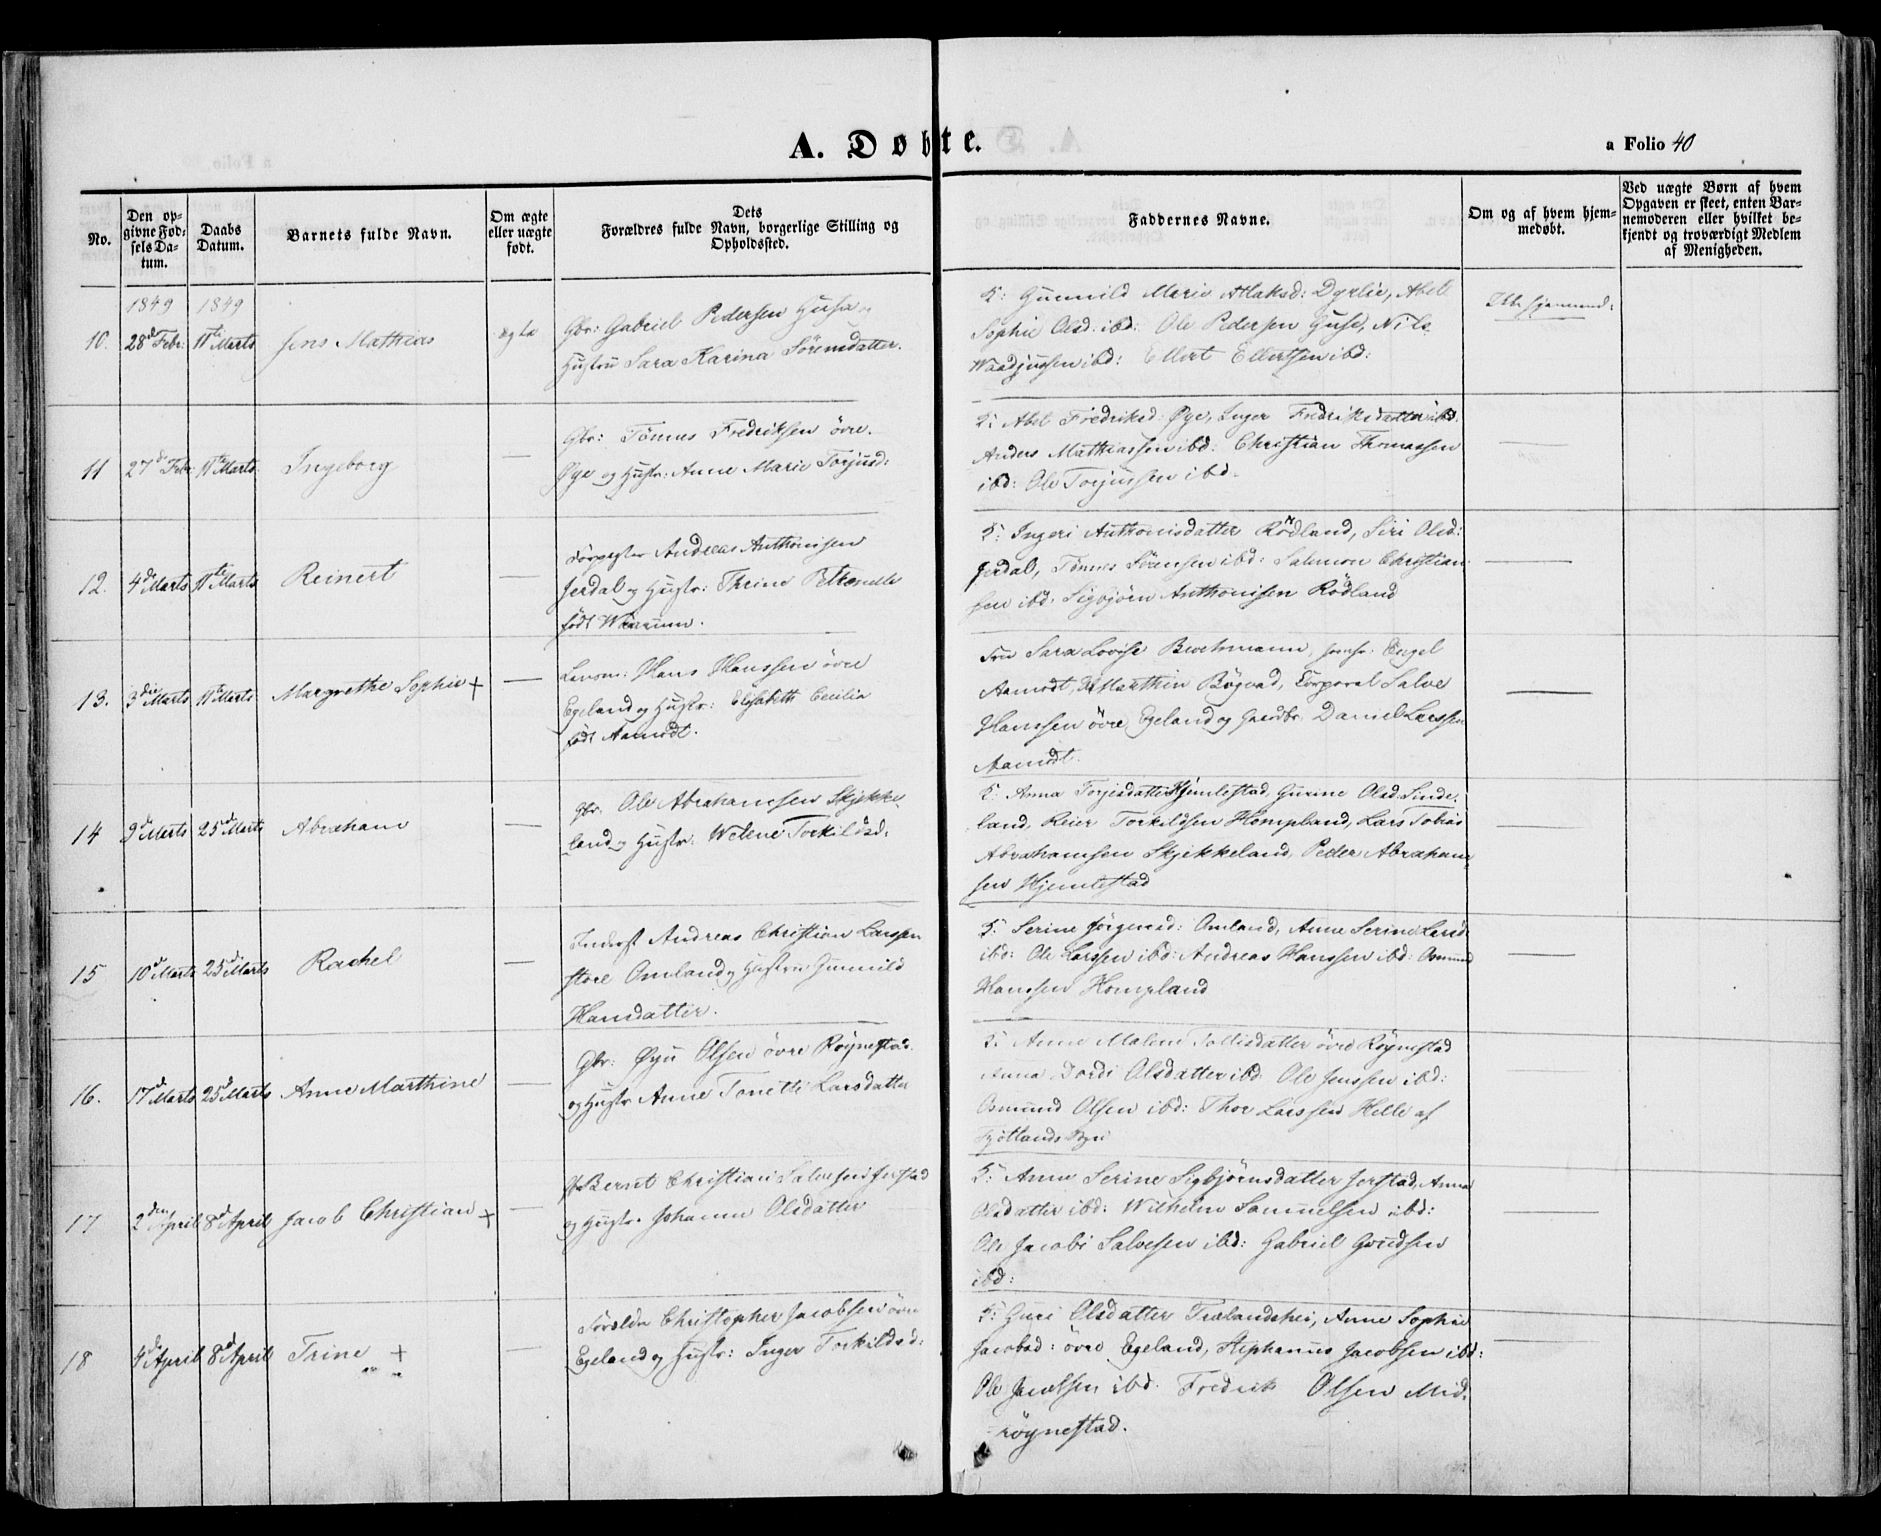 A. Døbte.
a Folio 40
No.
Den opgivne Fødsels Datum.
Daabs Datum.
Barnets fulde Navn.
Om ægte eller uægte født.
Dets Forældres fulde Navn, borgerlige Stilling og Opholdssted.
Faddernes Navne.
Om og af hvem hjemmedøbt.
Ved uægte Børn af hvem Opgaven er skeet, enten Barnemoderen eller hvilket bekjendt og troværdigt Medlem af Menigheden.
1849 1849
10. 28d Febr: 11te Marts Jens Mathias ægte
Gbr: Gabriel Pedersen Guse og
Hustru Sara Karina Sörensdatter.
F: Gunnild Marie Atlaksd: Dyrlie, Abel
Sophie Olsd. ibd: Ole Pedersen Guse, Nils
ibd: Ellert Ellertsen ibd:
Ikke hjemmed:
11 27d Febr 11te Marts Ingeborg —
Gbr: Tönnes Fredriksen övre
Øye og Hustr: Anne Marie Torjusd:
F: Abel Fredriksd: Øye, Inger Fredriksdatter ibd.
Anders Mathiassen ibd: Christian Thomassen
ibd: Ole Torjussen ibd.
12. 4de Marts 11te Marts Reinert —
Andreas Anthonisen
Jerdal og Hustr: Thrine Petronelle
født
F: Ingeri Anthonisdatter Rödland, Siri Olsd:
Jerdal, Tönnes Sörensen ibd: Salemon Christian-
sen ibd: Sigbjörn Anthonisen Rödland —
13. 3die Marts 11te Marts Margrethe Sophie + —
Lensm: Hans Hanssen övre
Egeland og Hustr: Elisabeth Cecilia
født Aamodt.
Fru Sara Lovise jomfr. Engel
Aamodt, Marthin Bögvad, Corporal Salve
Hanssen övre Egeland og Gaardbr. Daniel Larssen
Aamodt. —
14 9d Marts 25d Marts Abraham —
Gbr. Ole Abrahamsen Skjekke-
land og Hustr: Torkildsd:
F: Anna Torjesdatter Hjemlestad, Gurine Olsd: Linde-
land, Reier Torkildsen Hompland, Lars Tobias
Abrahamsen Skjekkeland, Peder Abraham-
sen Hjemlestad —
15 10d Marts 25d Marts Rachel —
Inderst Andreas Christian Larssen
store Omland og Hustru Gunnild
Hansdatter.
F: Serine Jörgensd: Omland, Anne Serine Larsd:
ibd: Ole Larssen ibd: Andreas Hanssen ibd: Osmund
Hanssen Hompland —
16. 17d Marts 25d Marts Anne Marthine —
Gbr: Olsen övre Röynestad
og Hustr Anne Tonette Larsdatter
F: Anne Malene Tollisdatter övre Röynestad
Anna Dordi Olsdatter ibd Ole Jenssen ibd:
Osmund Olsen ibd: Thor Larssen Helle af
Fjotlands —
17 2den April 8d April Jacob Christian + —
Bernt Christian Salvesen Jerstad
og Hustr. Johanne Olsdatter
F: Anne Serine Sigbjörnsdatter Jerstad, Anna
Olsdatter ibd: Wilhelm Samuelsen ibd:
Ole Jacobi Salvesen ibd: Gabriel
ibd: —
18 4de April 8d April Trine + —
Christopher Jacobsen övre
Egeland og Hustr: Inger Torkildsd:
F: Guri Olsdatter Trælandshei, Anne Sophie
Jacobsd: övre Egeland, Stephanus Jacobsen ibd:
Ole Jacobsen ibd. Fredrik Olsen Mid-
röynestad. —